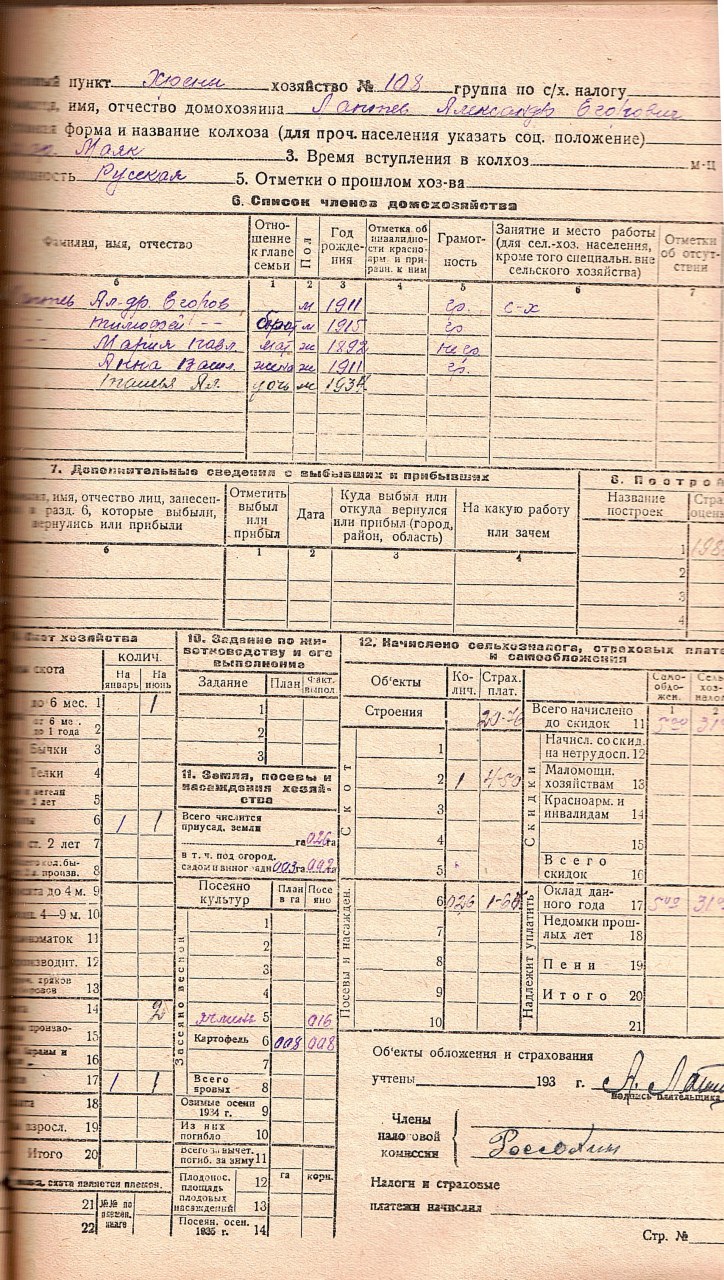 пункт Хюени хозяйство № 108 группа по с/х. налогу
имя, отчество домохозяина Лаптев Александр Егорович
форма и название колхоза (для проч. населения указать соц. положение)
Маяк 3. Время вступления в колхоз м-ц
Русская 5. Отметки о прошлом хоз-ва
6. Список членов домохозяйства
Фамилия, имя, отчество
Отношение к главе семьи
Пол
Год рождения
Отметка об инвалидности красноарм. и приравн. к ним
Грамотность
Занятие и место работы (для сел.-хоз. населения, кроме того специальн. вне сельского хозяйства)
Отметки об отсутствии
б 1 2 3 4 5 6 7
Ал-др. Егоров м 1911 гр. с-х
Тимофей -- брат м 1915 гр
Мария Павл. мат ж 1892 негр
Анна Васил. жена ж 1911 гр.
Ал. дочь 1934
7. Дополнительные сведения о выбывших и прибывших
8. Построй
имя, отчество лиц, занесен-
разд. 6, которые выбыли,
вернулись или прибыли
Отметить выбыл или прибыл
Дата
Куда выбыл или откуда вернулся или прибыл (город, район, область)
На какую работу или зачем
Название построек
Стра
оценк
б 1 2 3 4
1
2
3
4
хозяйства
скота
КОЛИЧ.
На январь
На июнь
до 6 мес. 1 1
от 6 ме.
до 1 года 2
Бычки 3
Телки 4
2 лет 5
6 1 1
ст. 2 лет 7
произв. 8
до 4 м. 9
4—9 м. 10
маток 11
производит. 12
13
14 2
произво- 15
16
17 1 1
18
взросл. 19
Итого 20
скота является племен.
21
22
№№ по племен. книге
10. Задание по животноводству и его выполнение
Задание План факт. выпол
1
2
3
11. Земля, посевы и насаждения хозяйства
Всего числится
приусад. земли
га 026 га
в т. ч. под огород.
садом и виноградн 003 га 092
Посеяно культур
План в га
Посеяно
Засеяно весной
1
2
3
4
ячмень 5 016
Картофель 6 008 008
7
Всего яровых 8
Озимые осени 1934 г. 9
Из них погибло 10
Всего за вычет. погиб. за зиму 11
га корн.
Плодонос. площадь плодовых насаждений
12
13
Посеян. осен. 1935 г. 14
12. Начислено сельхозналога, страховых плате
и самообложения
Об'екты
Колич.
Страх. плат.
Строения 20-76
Скот
1
2 1 4-50
3
4
5
Посевы и насажден.
6 026
7
8
9
10
Самообложен.
Сель
хоз-
нало
1 2
Всего начислено до скидок 11 5-00 31
Скидки
Начисл. со скид. на нетрудосп. 12
Маломощн. хозяйствам 13
Красноарм. и инвалидам 14
15
Всего скидок 16
Надлежит уплатить
Оклад данного года 17 5-00 31
Недомки прошлых лет 18
Пени 19
Итого 20
21
Об'екты обложения и страхования
учтены 193 г. А. Лапт
подпись плательщика
Члены
налоговой
комиссии
Налоги и страховые
платежи начислил
Стр. №